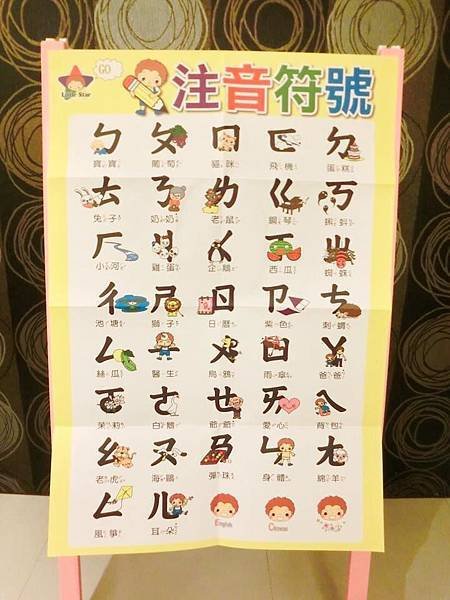 GO
Little Star
注音符號
ㄅ ㄆ ㄇ ㄈ ㄉ
寶寶 葡萄 貓咪 飛機 蛋糕
ㄊ ㄋ ㄌ ㄍ ㄎ
兔子 奶奶 老鼠 鋼琴 蝌蚪
ㄏ ㄐ ㄑ ㄒ ㄓ
小河 雞蛋 企鵝 西瓜 蜘蛛
ㄔ ㄕ ㄖ ㄗ ㄘ
池塘 獅子 日曆 紫色 刺蝟
ㄙ ㄧ ㄨ ㄩ ㄚ
絲瓜 醫生 烏鴉 雨傘 爸爸
ㄛ ㄜ ㄝ ㄞ ㄟ
茉莉 白鵝 爺爺 愛心 背包
ㄠ ㄡ ㄢ ㄣ ㄤ
老虎 海鷗 彈珠 身體 綿羊
ㄥ ㄦ English Chinese
風箏 耳朵